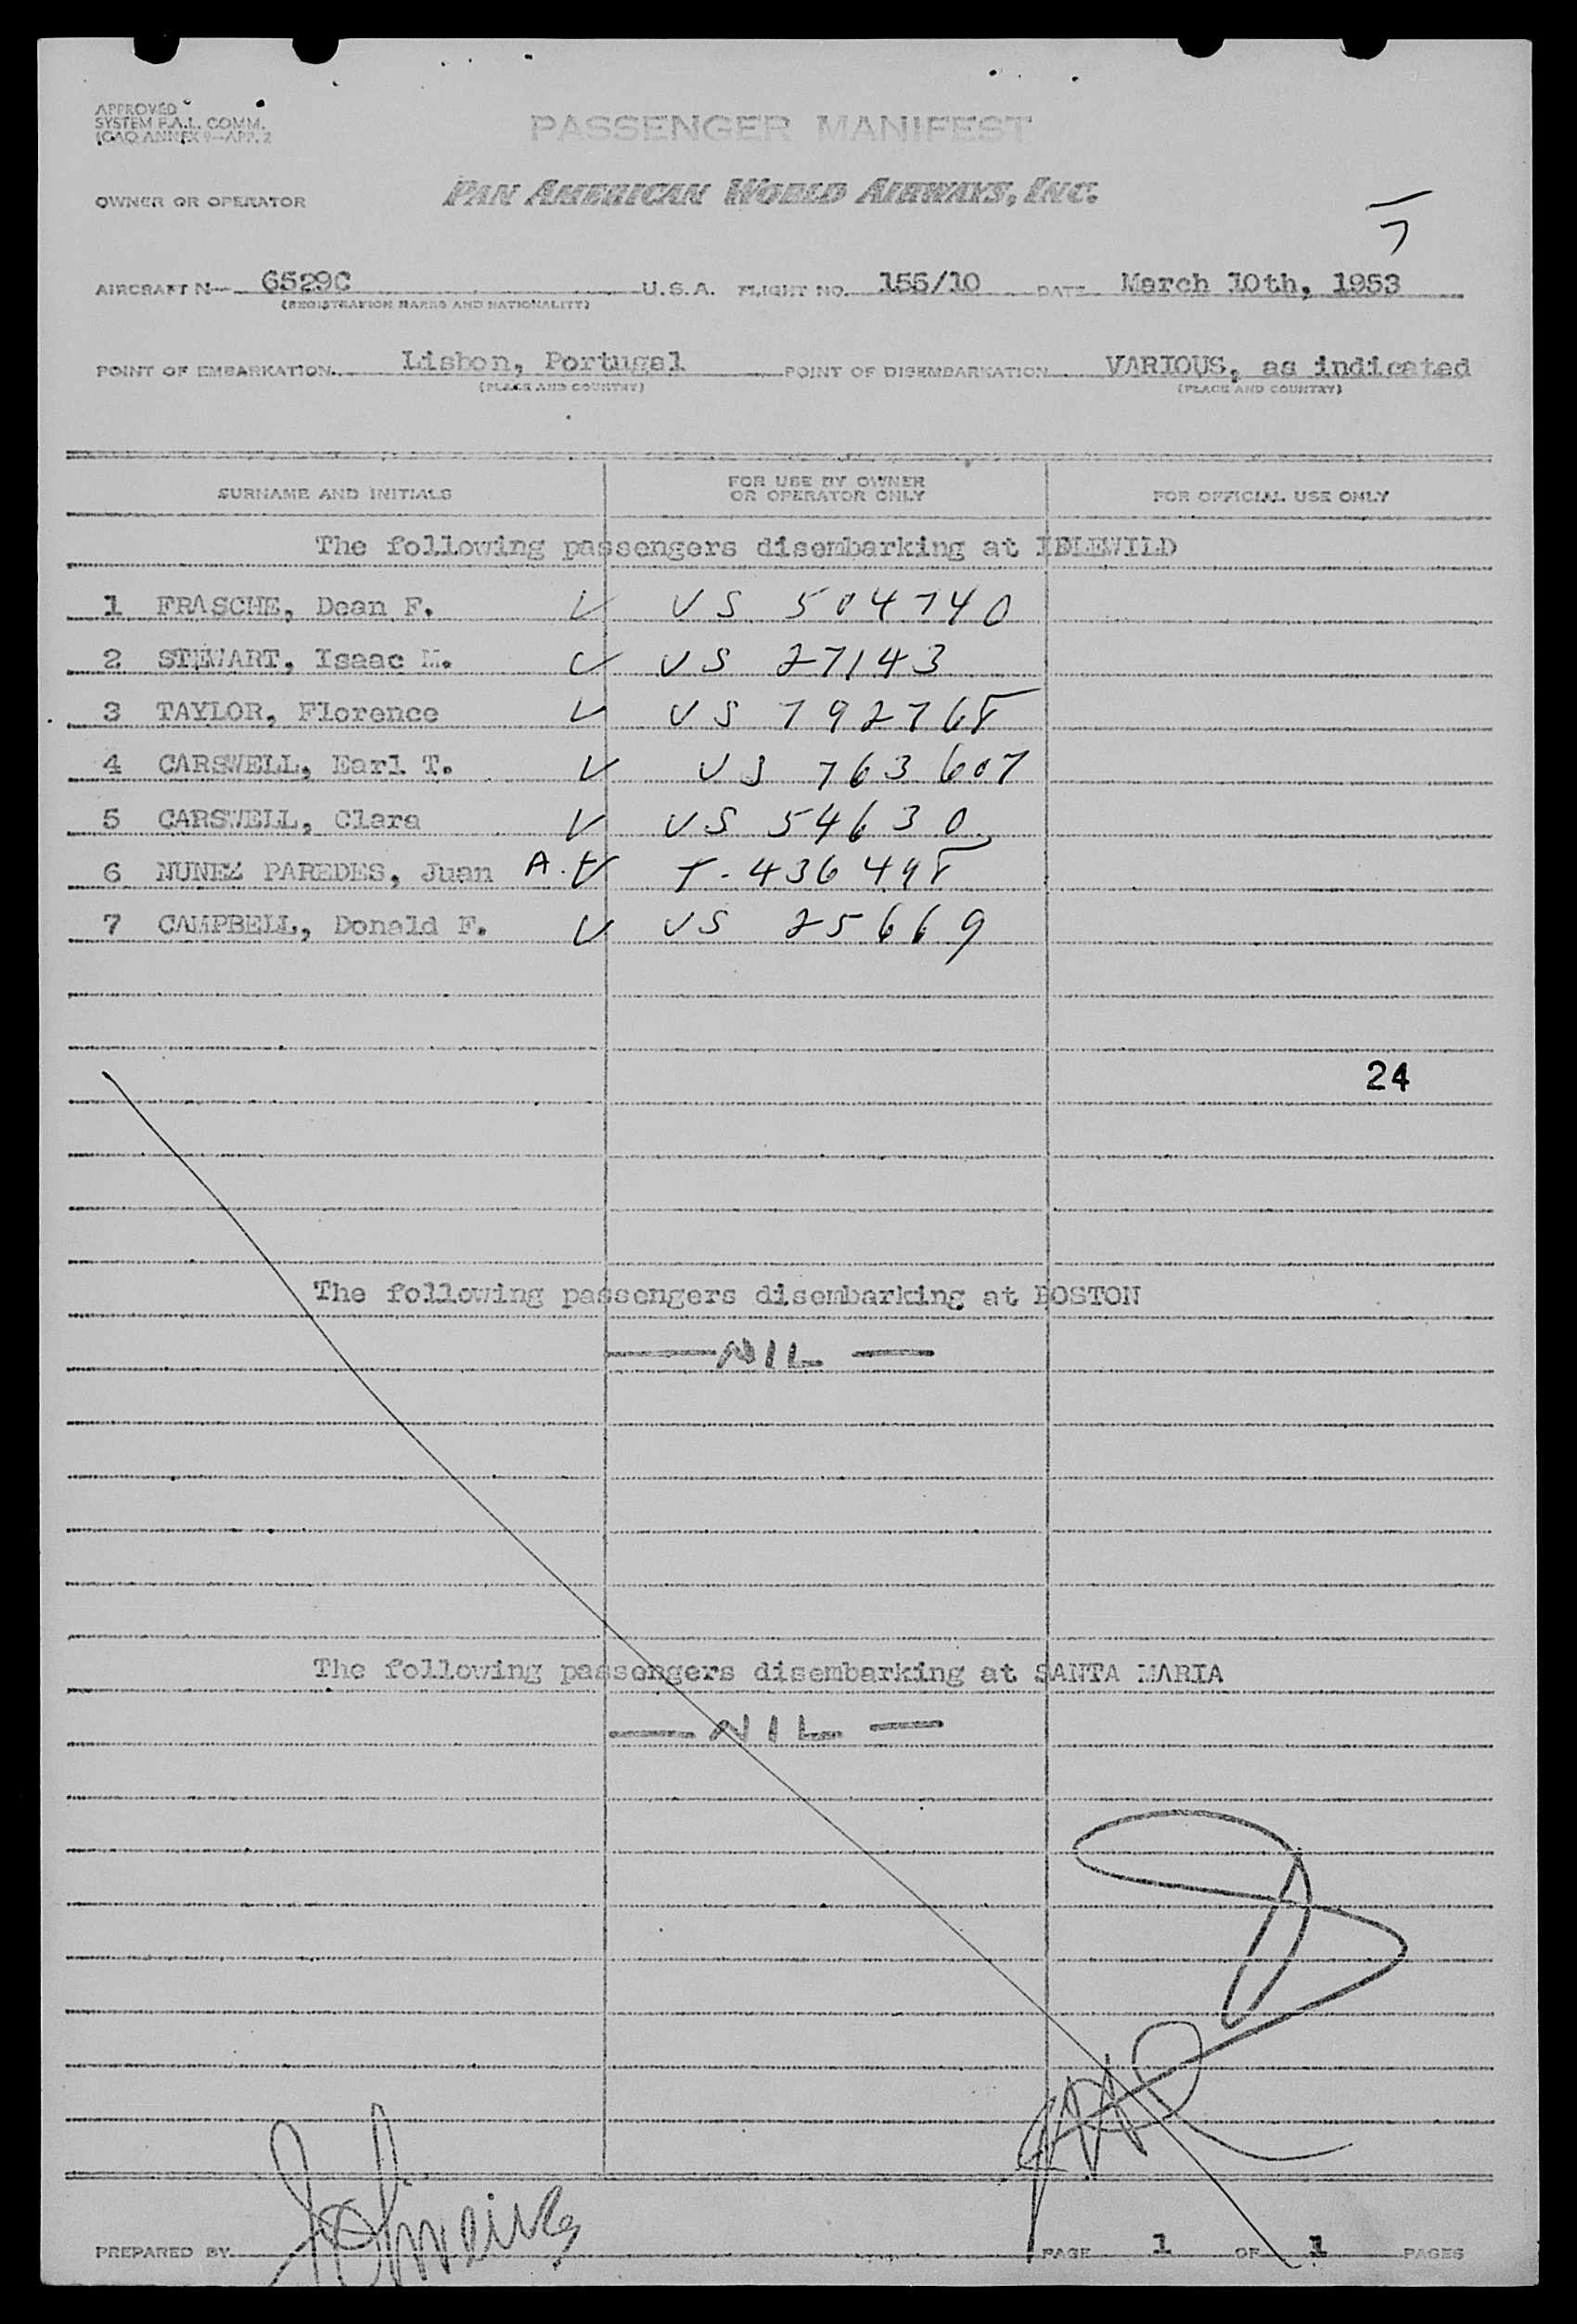 APPROVED
SYSTEM F.A.L. COMM.
ICAO ANNEX 9—APP. 2
PASSENGER MANIFEST
OWNER OR OPERATOR PAN AMERICAN WORLD AIRWAYS, INC.
7
AIRCRAFT N- 6529C U.S.A. FLIGHT NO. 155/10 DATE March 10th, 1953
(REGISTRATION MARKS AND NATIONALITY)
POINT OF EMBARKATION Lisbon, Portugal POINT OF DISEMBARKATION VARIOUS, as indicated
(PLACE AND COUNTRY) (PLACE AND COUNTRY)
SURNAME AND INITIALS FOR USE BY OWNER OR OPERATOR ONLY FOR OFFICIAL USE ONLY
The following passengers disembarking at IDLEWILD
1 FRASCHE, Dean F. V VS 504740
2 STEWART, Isaac M. V VS 27143
3 TAYLOR, Florence V VS 792768
4 CARSWELL, Earl T. V VS 763607
5 CARSWELL, Clara V VS 54630
6 NUNEZ PAREDES, Juan A. V T-436498
7 CAMPBELL, Donald F. V VS 25669
24
The following passengers disembarking at BOSTON
—NIL—
The following passengers disembarking at SANTA MARIA
—NIL—
PREPARED BY PAGE 1 OF 1 PAGES